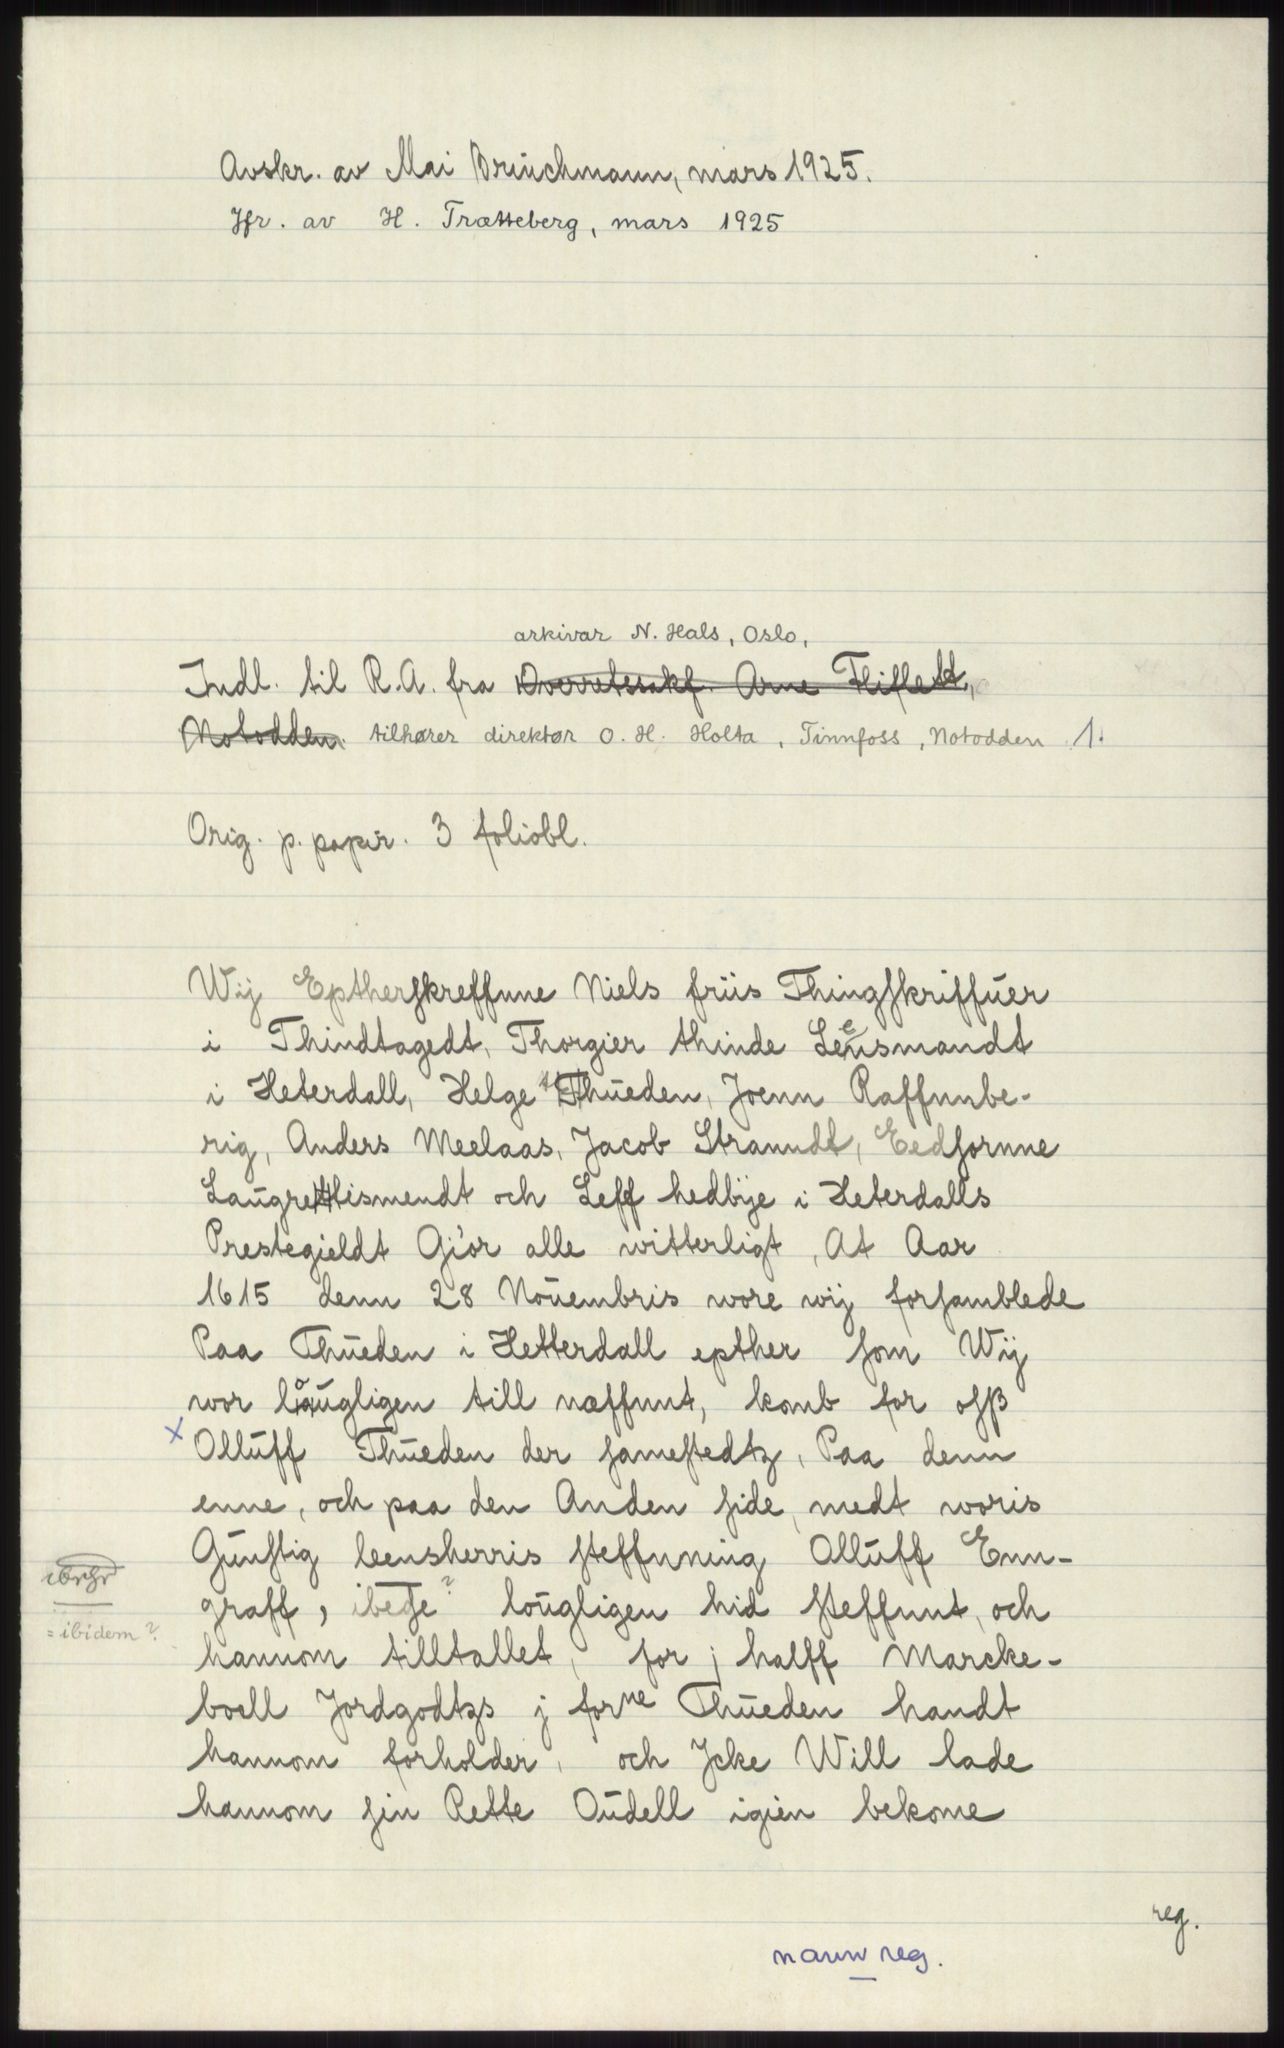 Avskr. av Mai Brüchmann, mars 1925.
Jfr. av H. Trætteberg, mars 1925
arkivar N. Hals, Oslo,
Indl. til R.A. fra Overretssakf. Arne Fliflett,
Notodden. tilhører direktør O. H. Holta, Tinnfoss, Notodden 1.
Orig. p. papir. 3 foliobl.
Wij Eptherskreffnne Niels friis Thingskriffuer
i Thindtagedt, Thorgier thinde Leensmandt
i Heterdall, Helge Thueden, Joenn Raffnnbe-
rig, Anders Meelaas, Jacob Stranndt, Eedsornne
Laugrettismendt och Leff hedbije i Heterdalls
Prestegieldt Giør alle witterligt, At Aar
1615 denn 28 Nouembris wore wij forsamblede
Paa Thueden i Hetterdall epther som Wij
wor lougligen till næffnnt, komb for osß
x Olluff Thueden der samestedtz, Paa denn
enne, och paa den Anden side, medt woris
Gunstig leensherris steffnning Olluff Enn-
graff, ibete? lougligen hid steffnnt, och
= ibidem?
hannom tilltallet, for j halff Marcke-
boell Jordgodtzs j forne Thueden handt
hannom forholder, och Jcke Will lade
hannom sin Rette Oudell igien bekome
reg.
navn reg.